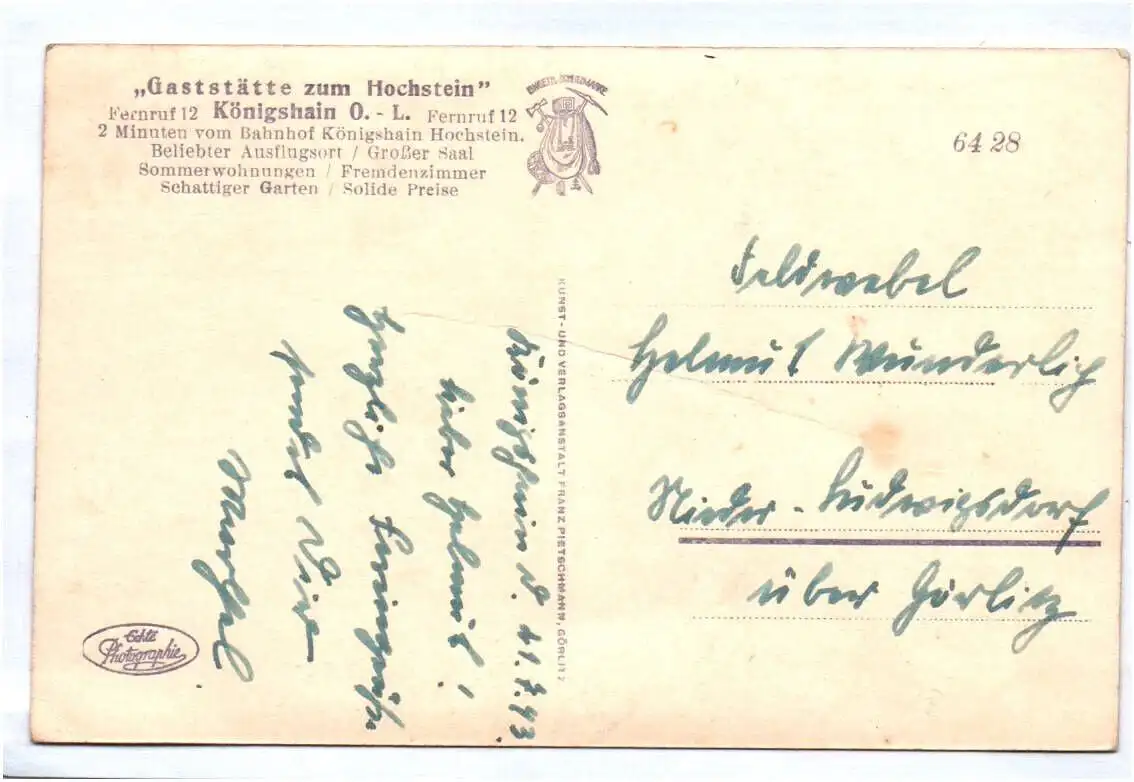 „Gaststätte zum Hochstein”
Fernruf 12 Königshain O.-L. Fernruf 12
2 Minuten vom Bahnhof Königshain Hochstein.
Beliebter Ausflugsort / Großer Saal
Sommerwohnungen / Fremdenzimmer
Schattiger Garten / Solide Preise
64 28
Königshain d. 11.7.43
Lieber Helmut!
Herzliche Feriengrüße
sendet Dir
KUNST- UND VERLAGSANSTALT FRANZ PIETSCHMANN, GÖRLITZ
Feldwebel
Helmut Wunderlich
Nieder-Ludwigsdorf
über Görlitz
Echte
Photographie